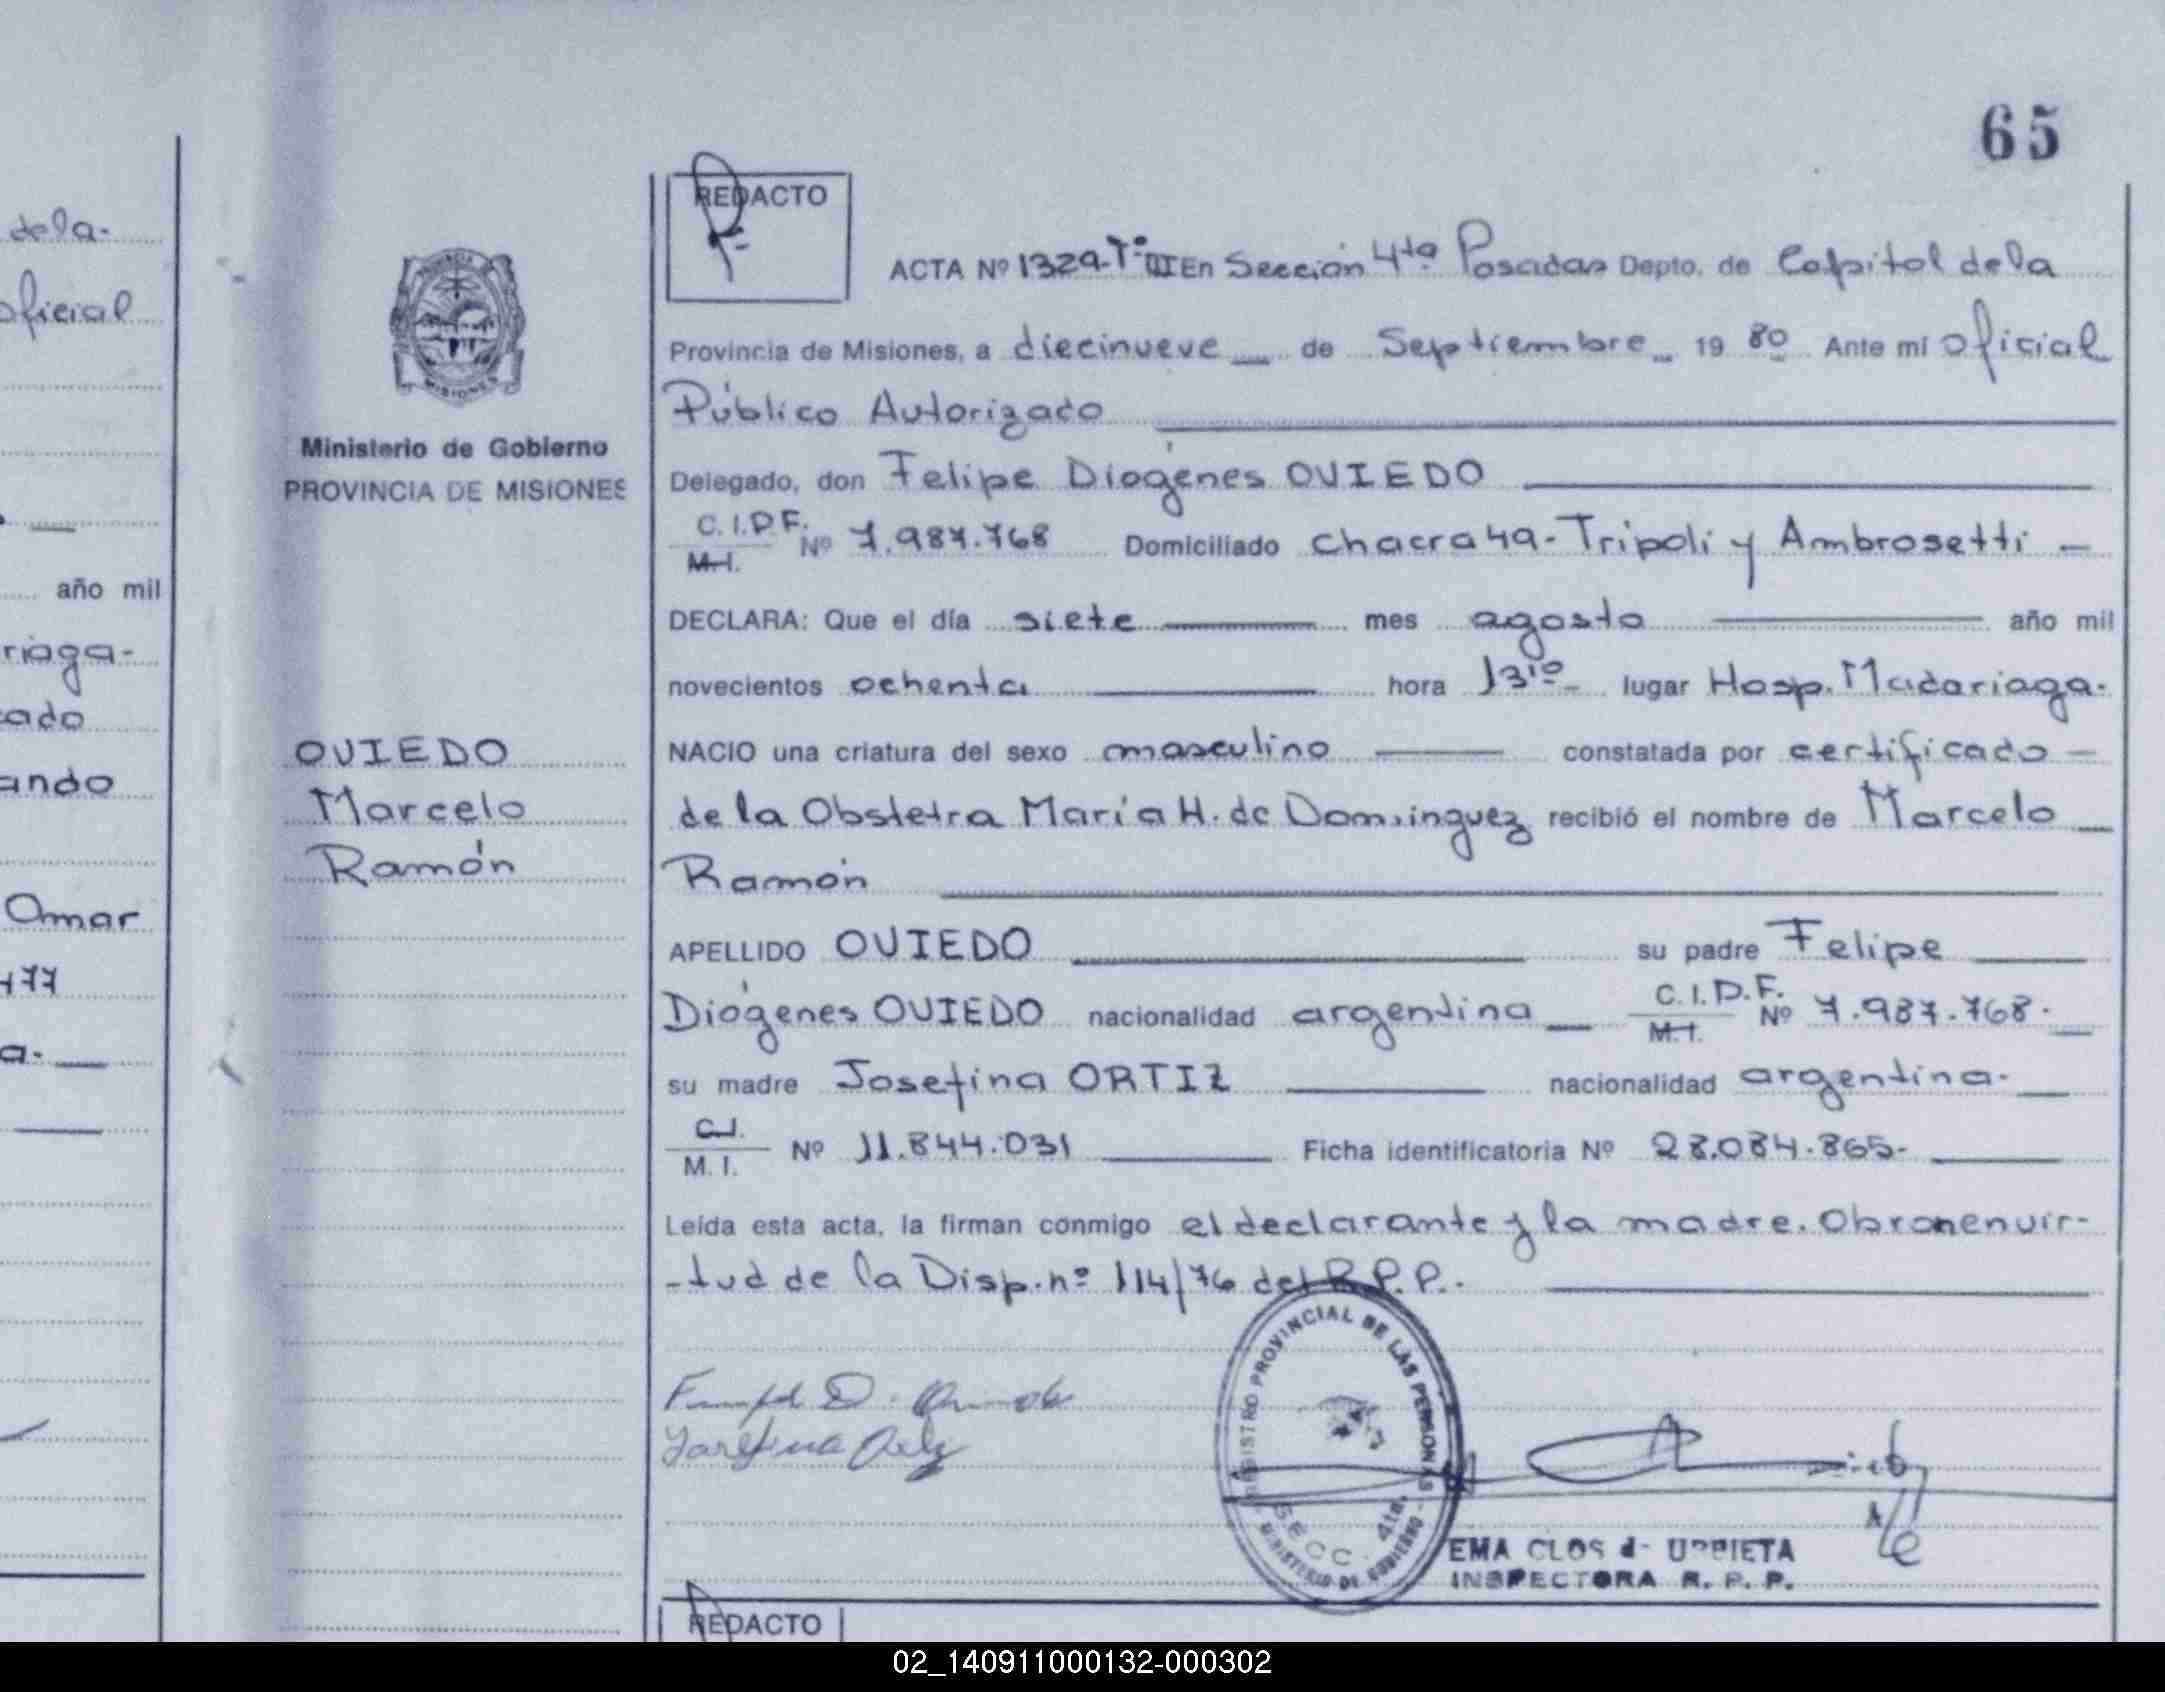 65
dela.
oficial
año mil
riaga-
cado
ando
Omar
477
a.
PROVINCIA
MISIONES
Ministerio de Gobierno
PROVINCIA DE MISIONES
OVIEDO
Marcelo
Ramón
REDACTO
ACTA Nº 1329-Tº III En Sección 4ta Posadas Depto. de Capital dela
Provincia de Misiones, a diecinueve de Septiembre 19 80 Ante mí Oficial
Público Autorizado
Delegado, don Felipe Diógenes OVIEDO
C.I.P.F. M.I. Nº 7.987.768 Domiciliado Chacra 49-Tripoli y Ambrosetti -
DECLARA: Que el día siete mes agosto año mil
novecientos ochenta hora 13,10 lugar Hosp. Madariaga.
NACIO una criatura del sexo masculino constatada por certificado -
de la Obstetra María H. de Dominguez recibió el nombre de Marcelo
Ramón
APELLIDO OVIEDO su padre Felipe
Diógenes OVIEDO nacionalidad argentina C.I.P.F. M.I. Nº 7.987.768.
su madre Josefina ORTIZ nacionalidad argentina.
C.I. M.I. Nº 11.844.031 Ficha identificatoria Nº 28.084.865-
Leída esta acta, la firman conmigo el declarante y la madre. Obran en vir-
-tud de la Disp. nº 114/76 del R.P.P.
REGISTRO PROVINCIAL DE LAS PERSONAS
SECC. 4ta.
MINISTERIO DE GOBIERNO
EMA CLOS de URRIETA
INSPECTORA R. P. P.
REDACTO
02_140911000132-000302